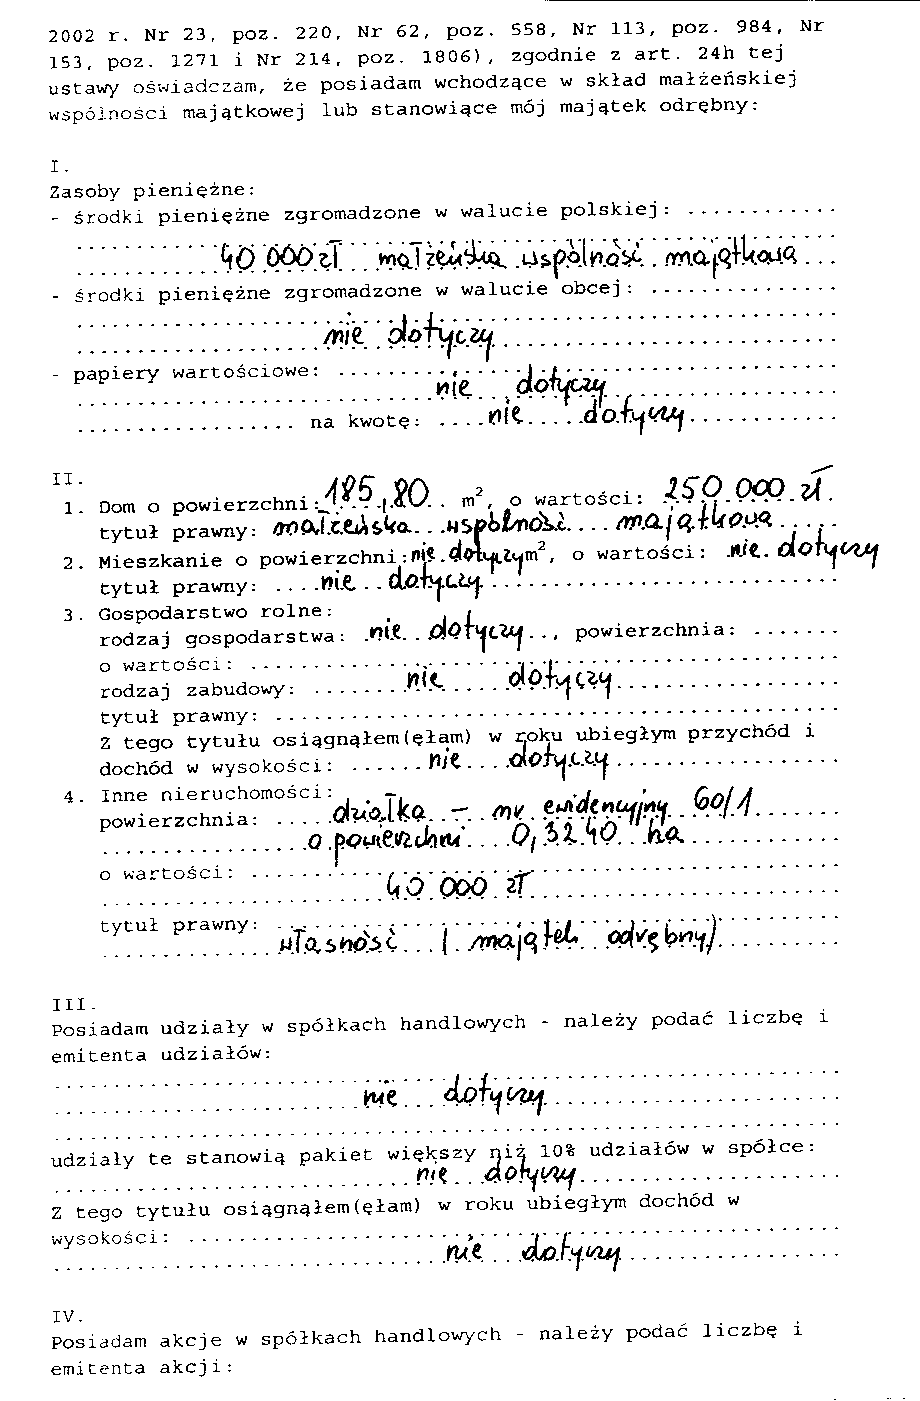 2002 r. Nr 23, poz. 220, Nr 62, poz. 558, Nr 113, poz. 984, Nr
153, poz. 1271 i Nr 214, poz. 1806), zgodnie z art. 24h tej
ustawy oświadczam, że posiadam wchodzące w skład małżeńskiej
wspólności majątkowej lub stanowiące mój majątek odrębny:
I.
Zasoby pieniężne:
- środki pieniężne zgromadzone w walucie polskiej: ............
40 000 zł małżeńska wspólność majątkowa ...
- środki pieniężne zgromadzone w walucie obcej: ...............
nie dotyczy
- papiery wartościowe: ........
nie dotyczy
.................. na kwotę: ....nie.....dotyczy............
II.
1. Dom o powierzchni: 185,80 m², o wartości: 250.000 zł.
tytuł prawny: małżeńska wspólność majątkowa
2. Mieszkanie o powierzchni: nie dotyczy m², o wartości: nie dotyczy
tytuł prawny: ....nie...dotyczy
3. Gospodarstwo rolne:
rodzaj gospodarstwa: .nie..dotyczy..., powierzchnia: .......
o wartości: ............
rodzaj zabudowy: .......nie.....dotyczy..................
tytuł prawny: ...............
Z tego tytułu osiągnąłem(ęłam) w roku ubiegłym przychód i
dochód w wysokości: ......nie....dotyczy..................
4. Inne nieruchomości:
powierzchnia: ....działka - nr ewidencyjny 60/1.......
o powierzchni 0,3240 ha
o wartości: ........
40 000 zł
tytuł prawny: ...
własność (majątek odrębny)
III.
Posiadam udziały w spółkach handlowych - należy podać liczbę i
emitenta udziałów:
nie dotyczy
udziały te stanowią pakiet większy niż 10% udziałów w spółce:
nie dotyczy
Z tego tytułu osiągnąłem(ęłam) w roku ubiegłym dochód w
wysokości: ..................
nie dotyczy
IV.
Posiadam akcje w spółkach handlowych - należy podać liczbę i
emitenta akcji: